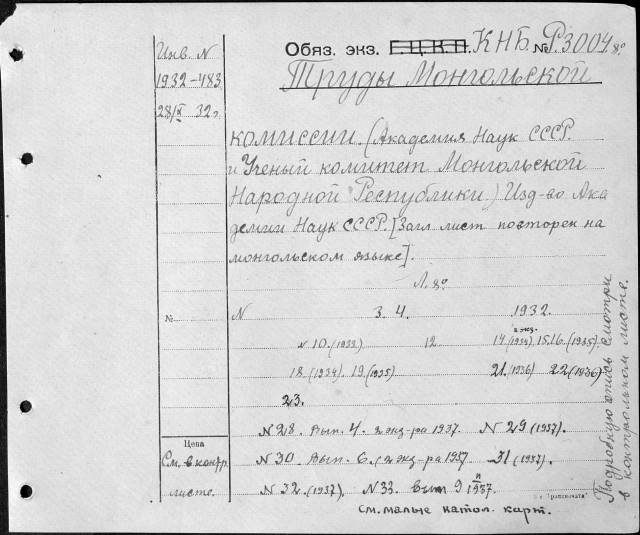 Инв. N
1932-483
28/X 32 г.
Обяз. экз. Г.Ц.К.П. К.Н.Б. № Р.3004 8°.
Труды Монгольской
комиссии. (Академия Наук СССР.
и Ученый комитет Монгольской
Народной Республики.) Изд-во Ака
демии Наук СССР. [Загл лист повторен на
монгольском языке].
Л. 8°.
№ N 3. 4. 1932.
2 экз.
N 10. (1933) 12 14 (1934), 15.16. (1935).
18. (1934) 19. (1935) 21. (1936) 22 (1936)
23.
N 28. Вып. 4. 2 экз-ра 1937. N 29 (1937).
N 30 Вып. 6. (2 экз-ра 1937 31 (1937).
N 32 (1937). N 33. Вып 9 1937.
см. малые катол. карт.
Цена
См. в контр.
листе.
Подробную опись смотри
в контрольном листе.